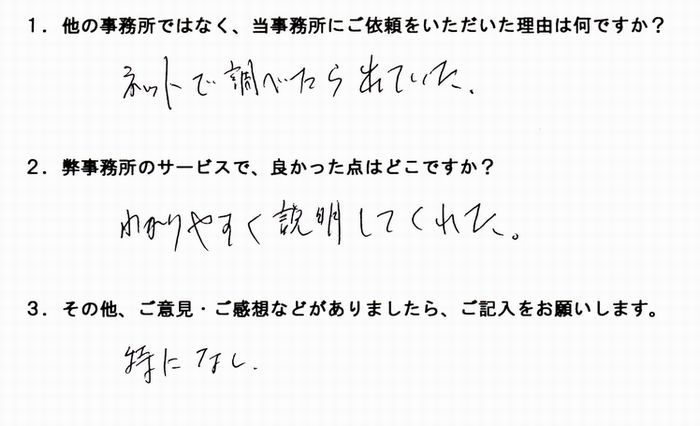 1．他の事務所ではなく、当事務所にご依頼をいただいた理由は何ですか？
ネットで調べたら出ていた.
2．弊事務所のサービスで、良かった点はどこですか？
わかりやすく説明してくれた。
3．その他、ご意見・ご感想などがありましたら、ご記入をお願いします。
特になし.